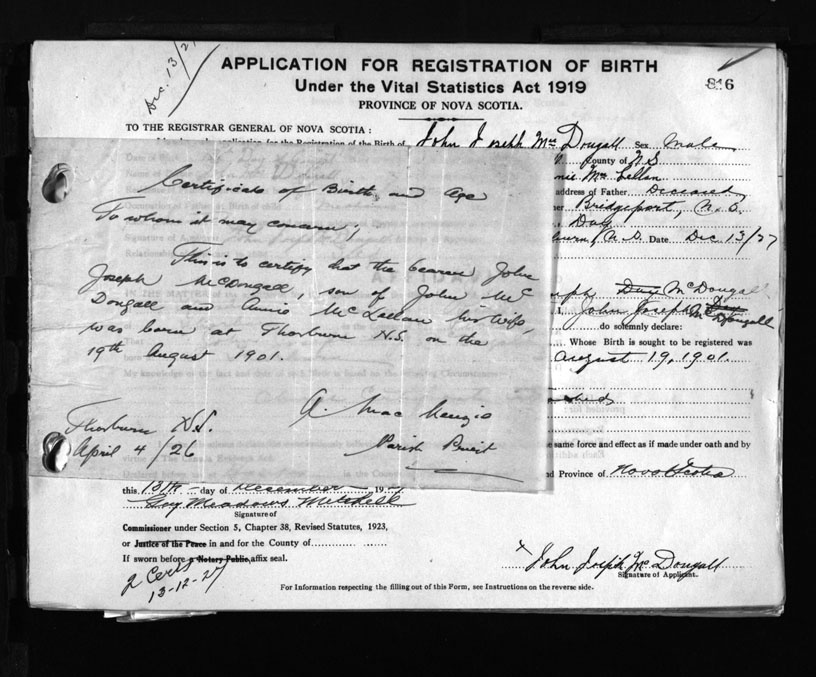 Dec. 13/27
APPLICATION FOR REGISTRATION OF BIRTH
816
Under the Vital Statistics Act 1919
PROVINCE OF NOVA SCOTIA.
TO THE REGISTRAR GENERAL OF NOVA SCOTIA:
John Joseph Mac Dougall Sex Male
County of N.S.
Mac Lellan
address of Father Deceased
Bridgeport, N.S.
Date Dec 13/27
Certificate of Birth and Age
To whom it may concern;
This is to certify that the bearer John
Joseph McDougall, son of John Mc
Dougall and Annie McLellan his wife,
was born at Thorburn N.S. on the
19th August 1901.
A. MacKenzie
Parish Priest
Thorburn N.S.
April 4/26
Day McDougall
John Joseph McDougall
do solemnly declare:
Whose Birth is sought to be registered was
August 19, 1901.
same force and effect as if made under oath and by
and Province of Nova Scotia
this 13th day of December 19
Guy Meadows Mitchell
Signature of
Commissioner under Section 5, Chapter 38, Revised Statutes, 1923,
or Justice of the Peace in and for the County of
If sworn before a Notary Public, affix seal.
2 Certs
13-12-27
x John Joseph McDougall
Signature of Applicant.
For Information respecting the filling out of this Form, see Instructions on the reverse side.